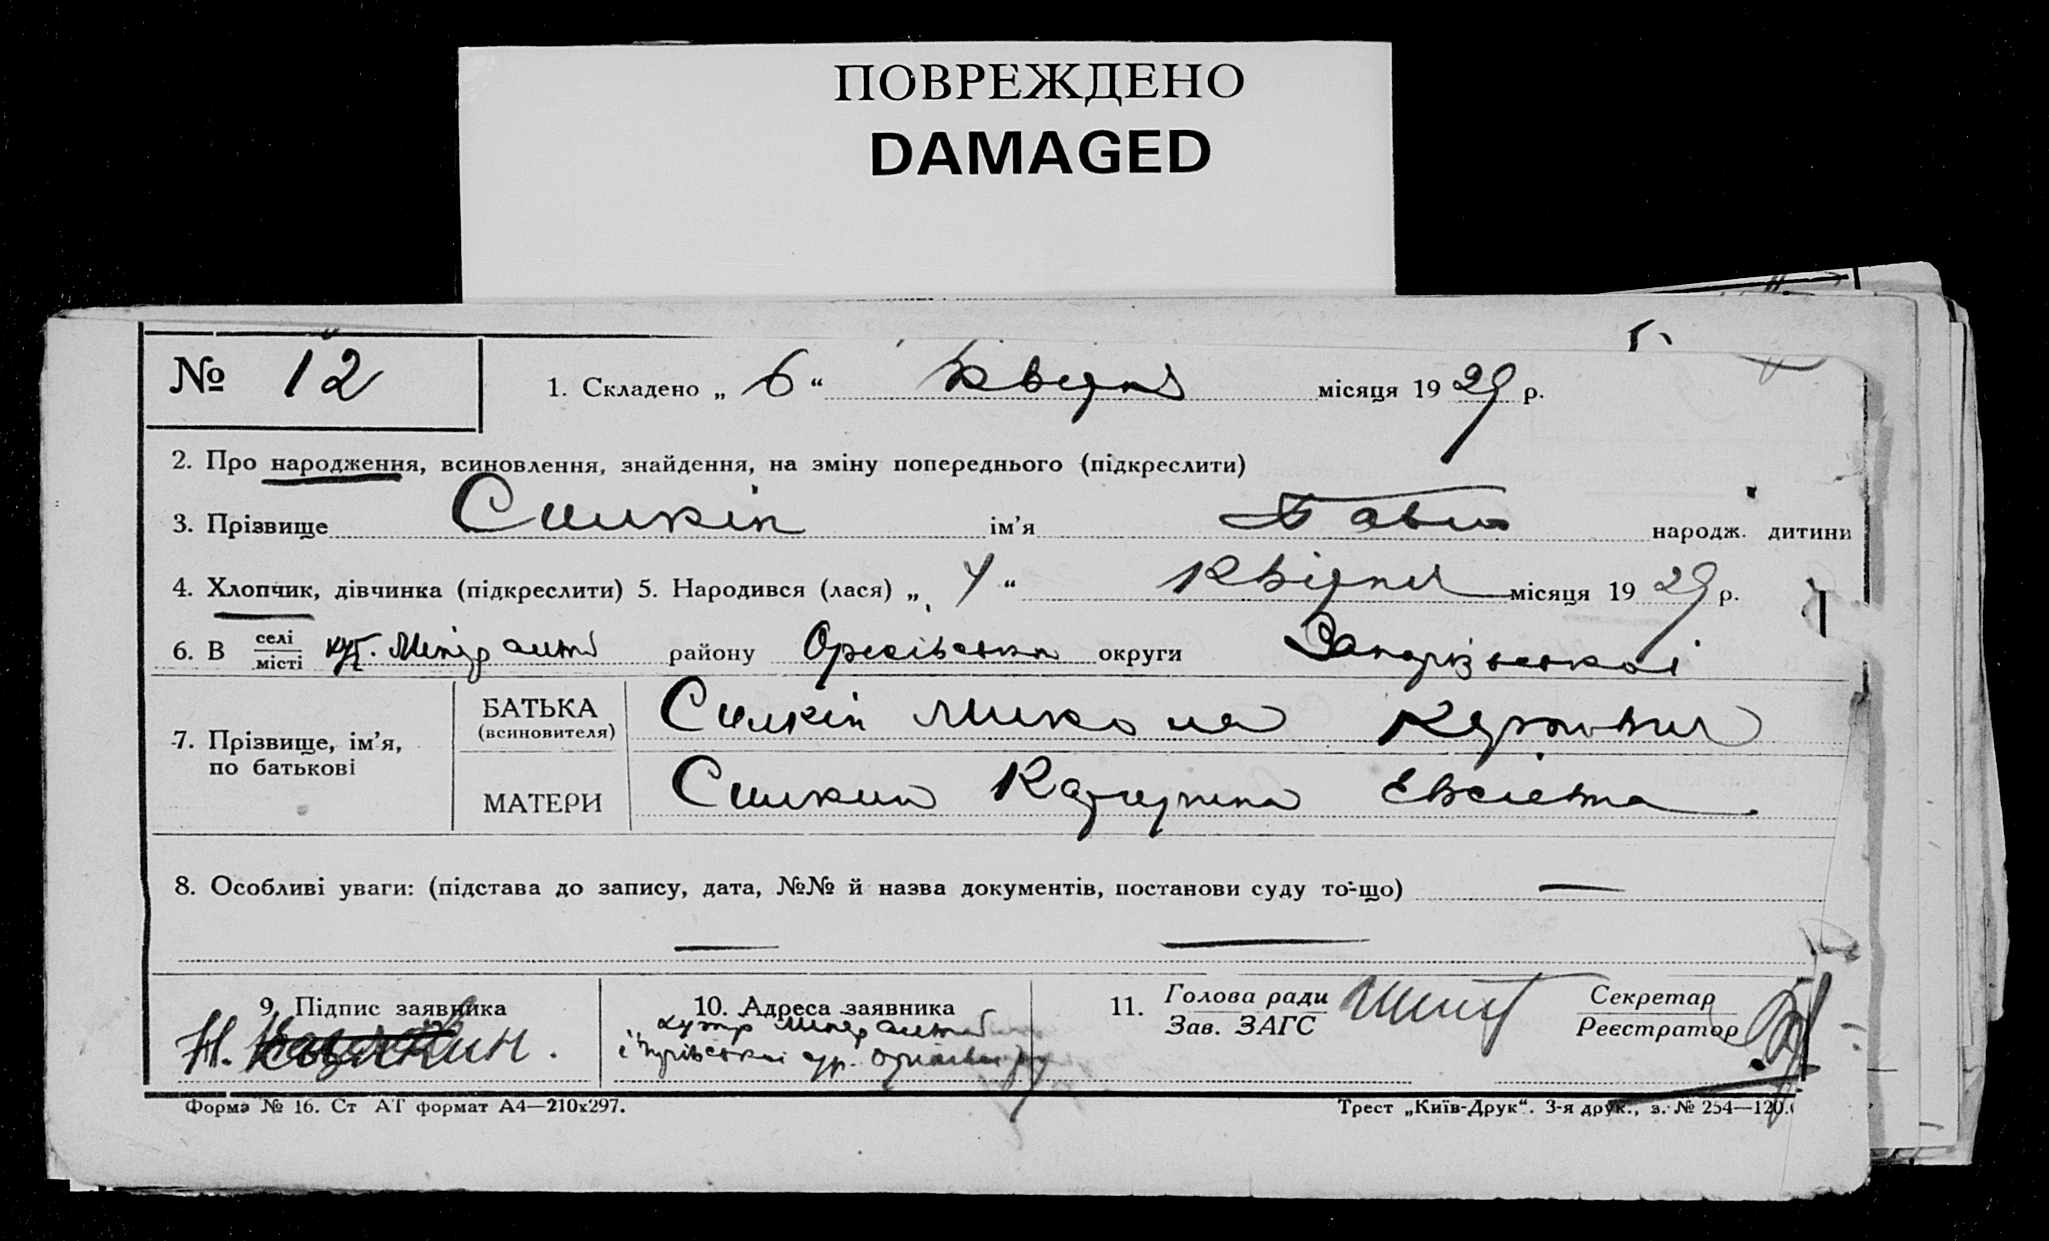 ПОВРЕЖДЕНО
DAMAGED
№ 12
1. Складено „ 6 “ Квітня місяця 1929 р.
2. Про народження, всиновлення, знайдення, на зміну попереднього (підкреслити)
3. Прізвище Силкін ім’я Павло народж. дитини
4. Хлопчик, дівчинка (підкреслити) 5. Народився (лася) „ 4 “ Квітня місяця 1929 р.
6. В селі/місті хут. району Оріхівського округи Запорізської
7. Прізвище, ім’я, по батькові
БАТЬКА (всиновителя) Силкін Микола
МАТЕРИ Силкина Катерина Евсієвна
8. Особливі уваги: (підстава до запису, дата, №№ й назва документів, постанови суду то-що) —
— —
9. Підпис заявника
10. Адреса заявника
11. Голова ради Секретар
Зав. ЗАГС Реєстратор
хутір
Форма № 16. Ст АТ формат А4—210х297.
Трест „Київ-Друк“. 3-я друк., з. № 254—120.